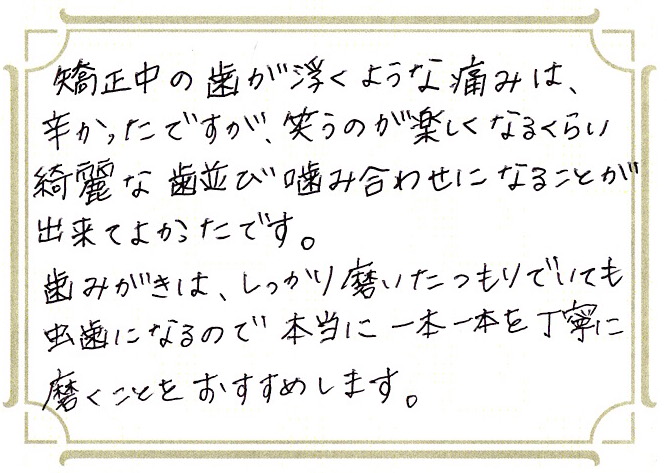 矯正中の歯が浮くような痛みは、
辛かったですが、笑うのが楽しくなるくらい
綺麗な歯並び噛み合わせになることが
出来てよかったです。
歯みがきは、しっかり磨いたつもりでいても
虫歯になるので本当に一本一本を丁寧に
磨くことをおすすめします。